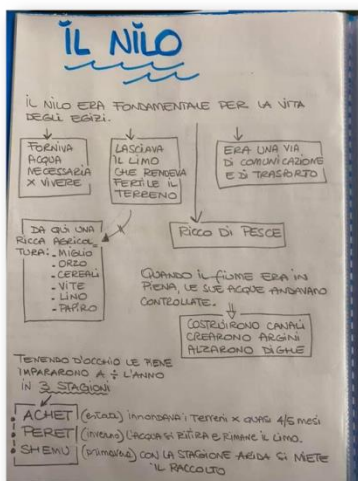 IL NILO
IL NILO ERA FONDAMENTALE PER LA VITA
DEGLI EGIZI.
FORNIVA
ACQUA
NECESSARIA
X VIVERE
LASCIAVA
IL LIMO
CHE RENDEVA
FERTILE IL
TERRENO
ERA UNA VIA
DI COMUNICAZIONE
E DI TRASPORTO
DA QUI UNA
RICCA AGRICOL
TURA:- MIGLIO
- ORZO
- CEREALI
- VITE
- LINO
- PAPIRO
RICCO DI PESCE
QUANDO IL FIUME ERA IN
PIENA, LE SUE ACQUE ANDAVANO
CONTROLLATE.
COSTRUIRONO CANALI
CREARONO ARGINI
ALZARONO DIGHE
TENENDO D'OCCHIO LE PIENE
IMPARARONO A ÷ L'ANNO
IN 3 STAGIONI
ACHET (estate) INNONDAVA I TERRENI X QUASI 4/5 MESI
PERET (inverno) L'ACQUA SI RITIRA E RIMANE IL LIMO.
SHEMU (primavera) CON LA STAGIONE ARIDA SI MIETE
IL RACCOLTO